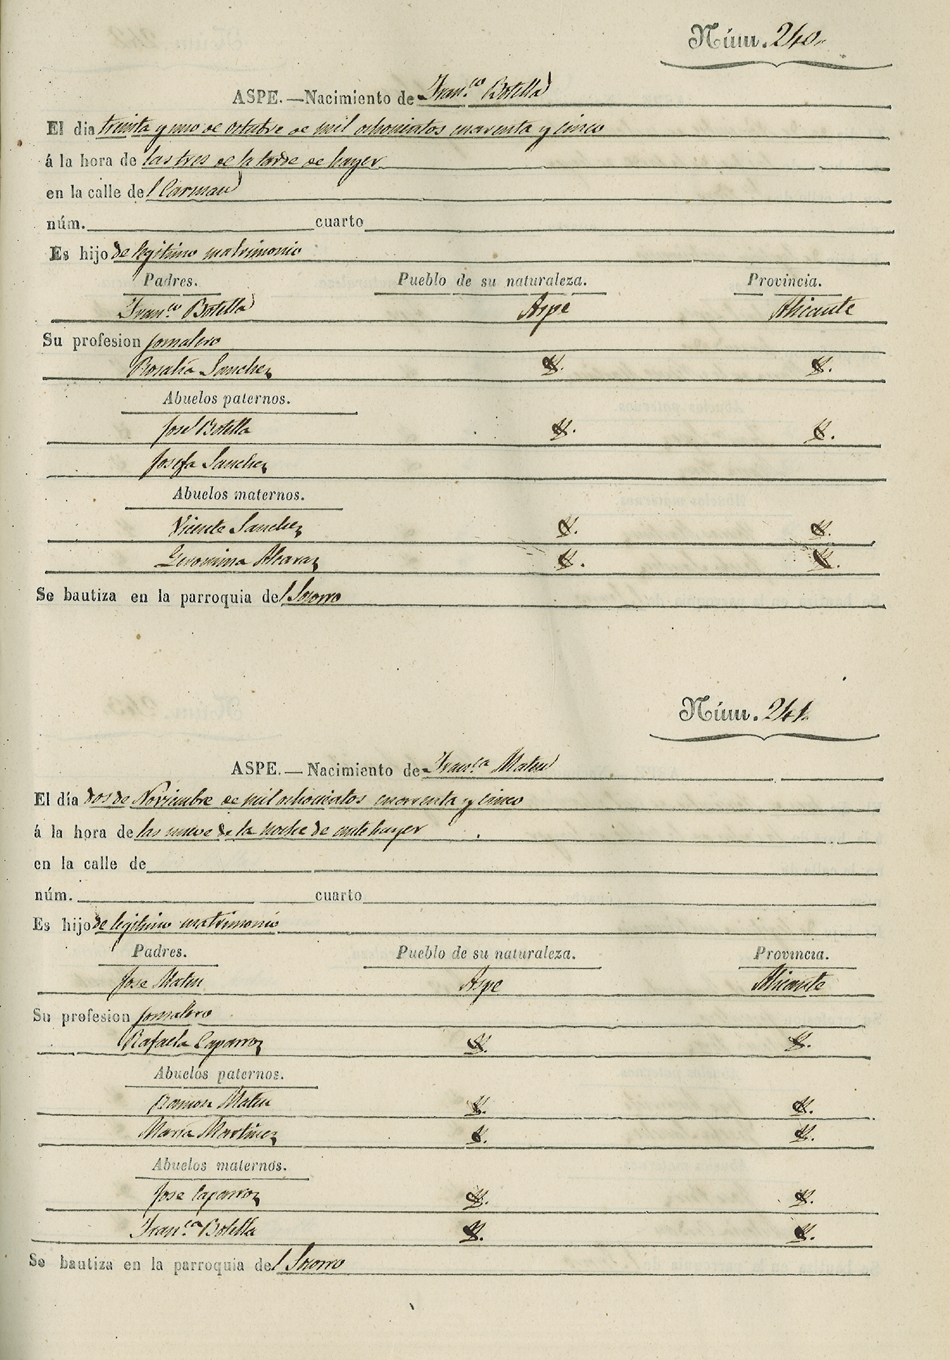 Núm. 240.
ASPE.—Nacimiento de Fran.co Botella
El dia treinta y uno de octubre de mil ochocientos cuarenta y cinco
á la hora de las tres de la tarde de hayer
en la calle del Carmen
núm. cuarto
Es hijo de legitimo matrimonio
Padres. Pueblo de su naturaleza. Provincia.
Fran.co Botella Aspe Alicante
Su profesion jornalero
Rosalia Sanchez Y. Y.
Abuelos paternos.
José Botella Y. Y.
Josefa Sanchez
Abuelos maternos.
Vicente Sanchez Y. Y.
Geronima Alcaraz Y. Y.
Se bautiza en la parroquia del Socorro
Núm. 241.
ASPE.—Nacimiento de Fran.ca Mateu
El día dos de Noviembre de mil ochocientos cuarenta y cinco
á la hora de las nueve de la noche de antehayer
en la calle de
núm. cuarto
Es hijo de legitimo matrimonio
Padres. Pueblo de su naturaleza. Provincia.
Jose Mateu Aspe Alicante
Su profesion jornalero
Rafaela Caparroz Y. Y.
Abuelos paternos.
Ramon Mateu Y. Y.
Maria Martinez Y. Y.
Abuelos maternos.
Jose Caparroz Y. Y.
Fran.ca Botella Y. Y.
Se bautiza en la parroquia del Socorro